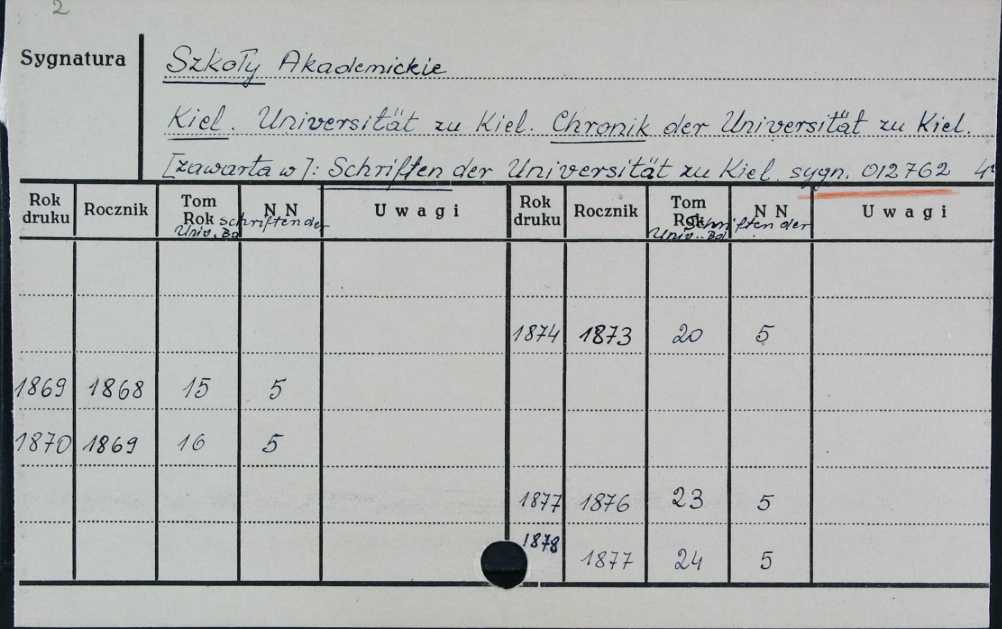 2
Sygnatura
Szkoły Akademickie
Kiel. Universität zu Kiel. Chronik der Universität zu Kiel.
[zawarta w]: Schriften der Universität zu Kiel sygn. 012762 4°
Rok druku Rocznik Tom Rok N N Uwagi Rok druku Rocznik Tom Rok N N Uwagi
Schriften der Univ. Bd Schriften der Univ. Bd
1874 1873 20 5
1869 1868 15 5
1870 1869 16 5
1877 1876 23 5
1878 1877 24 5